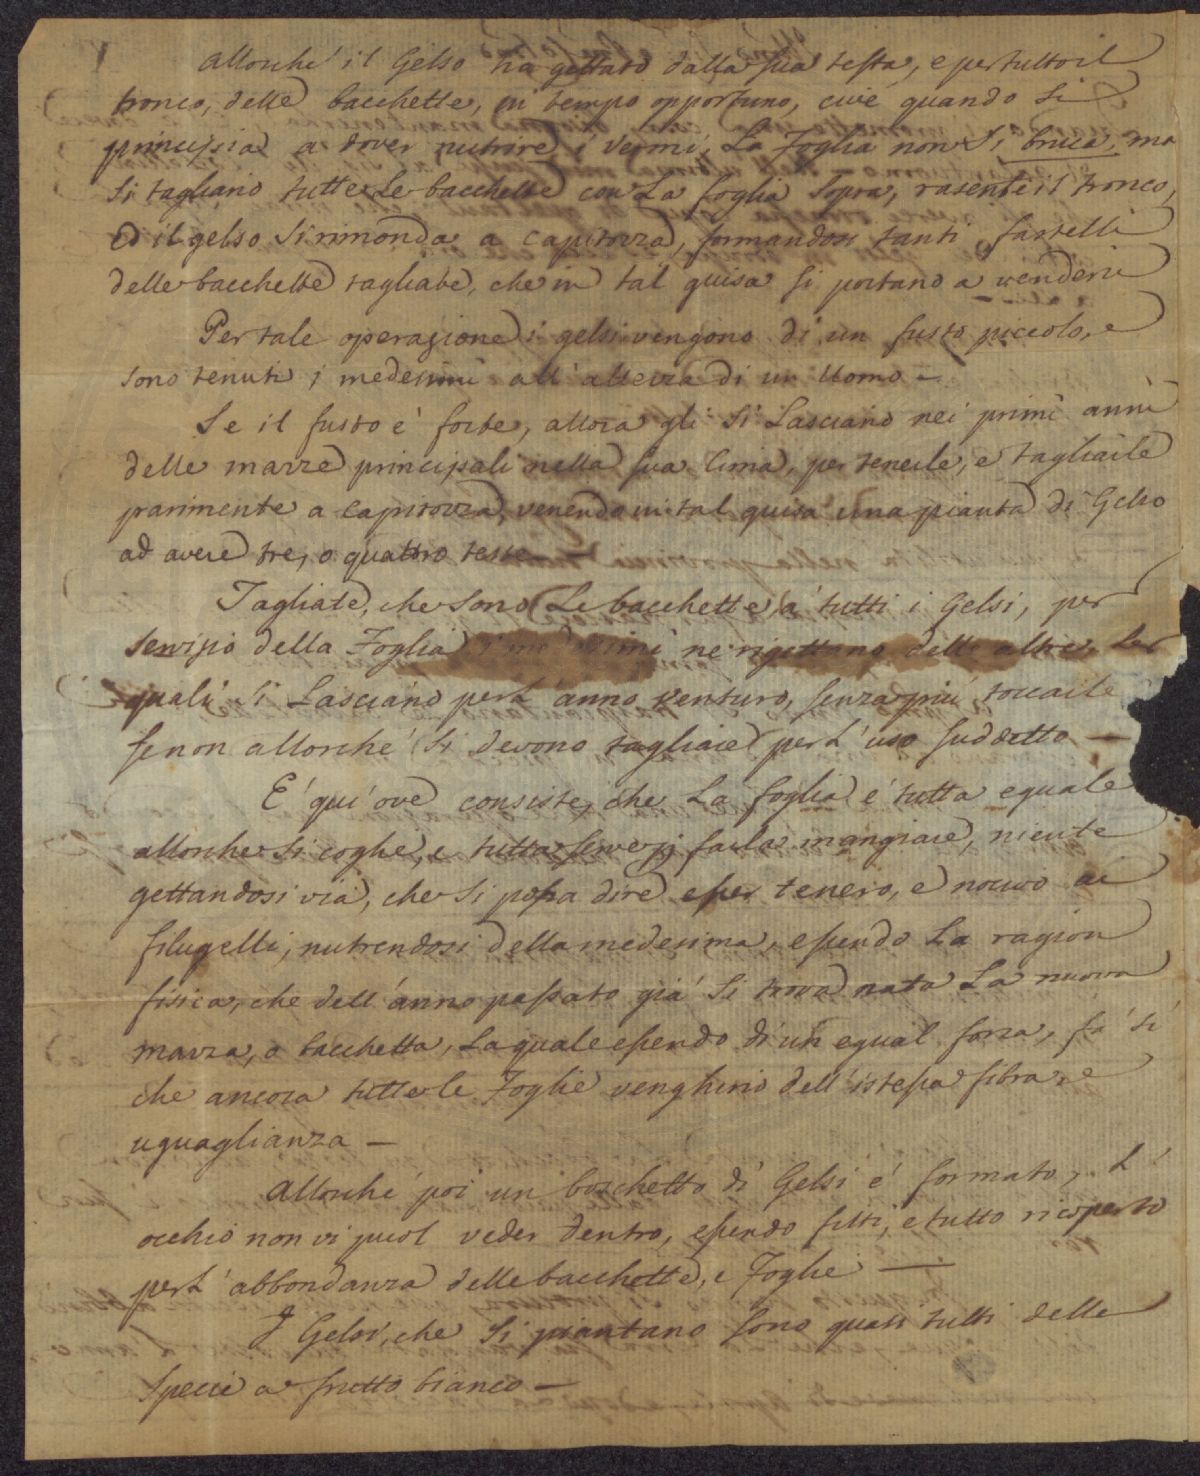 Allorché il Gelso ha gettato dalla sua testa, e per tutto il
tronco, delle bacchette, in tempo opportuno, cioé quando si
principia a dover nutrire i vermi, La foglia non si bruca, ma
si tagliano tutte Le bacchette con La foglia sopra, rasente il tronco,
ed il gelso si rimonda a capitozza, formandosi tanti fastelli
delle bacchette tagliate, che in tal guisa si portano a vendere
Per tale operazione i gelsi vengono di un fusto piccolo, e
sono tenuti i medesimi all'altezza di un Uomo —
Se il fusto è forte, allora gli si Lasciano nei primi anni
delle mazze principali nella sua Cima, per tenerle, e tagliarle
parimente a capitozza, venendo in tal guisa una pianta di Gelso
ad avere tre, o quattro teste —
Tagliate, che sono Le bacchette a tutti i Gelsi, per
servizio della Foglia i medesimi ne rigettano delle altre, Le
quali si Lasciano per L'anno venturo, senza più toccarle
se non allorché si devono tagliare per L'uso suddetto —
E' qui ove consiste, che La foglia é tutta eguale
allorche si coglie, e tutta serve p farla mangiare, niente
gettandosi via, che si possa dire esser tenero, e nocivo ai
filugelli, nutrendosi della medesima, essendo La ragion
fisica, che dell'anno passato giá si trova nata La nuova
mazza, o bacchetta, La quale essendo di un egual forza, fá sí
che ancora tutte le Foglie venghino dell'istessa fibra, e
uguaglianza —
Allorché poi un boschetto di Gelsi é formato, L'
occhio non vi puol veder dentro, essendo fitti, e tutto ricoperto
per L'abbondanza delle bacchette, e Foglie —
I Gelsi, che si piantano sono quasi tutti delle
specie a frutto bianco —